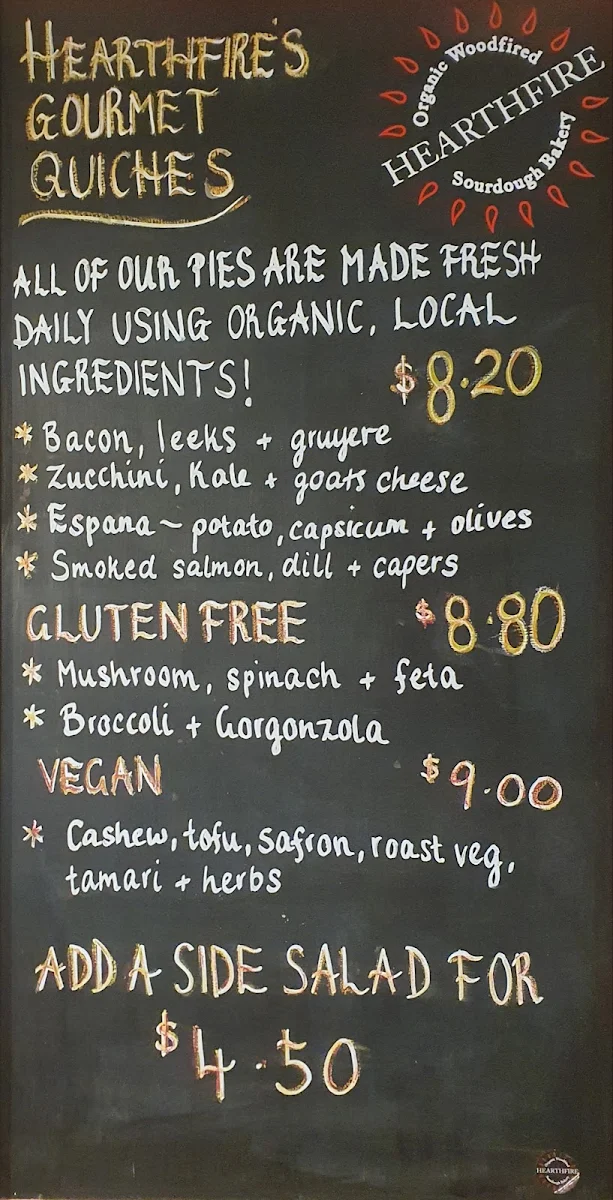 HEARTHFIRE'S
GOURMET
QUICHES
Organic Woodfired
HEARTHFIRE
Sourdough Bakery
ALL OF OUR PIES ARE MADE FRESH
DAILY USING ORGANIC, LOCAL
INGREDIENTS! $8.20
* Bacon, leeks + gruyere
* Zucchini, Kale + goats cheese
* Espana ~ potato, capsicum + olives
* Smoked salmon, dill + capers
GLUTEN FREE $8.80
* Mushroom, spinach + feta
* Broccoli + Gorgonzola
VEGAN $9.00
* Cashew, tofu, safron, roast veg,
tamari + herbs
ADD A SIDE SALAD FOR
$4.50
HEARTHFIRE